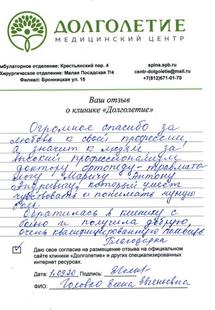 ДОЛГОЛЕТИЕ
МЕДИЦИНСКИЙ ЦЕНТР
Амбулаторное отделение: Крестьянский пер. 4
Хирургическое отделение: Малая Посадская 7/4
Филиал: Бронницкая ул. 15
spina.spb.ru
centr-dolgoletie@mail.ru
+7(812)671-01-70
Ваш отзыв
о клинике «Долголетие»
Огромное спасибо за
любовь к своей профессии,
а значит к людям за
высокий профессионализм
доктору ортопеду-травмато-
логу Маричу Антону
который умеет
чувствовать и понимать чужую
боль.
Обратилась в клинику с
болью и получила добрую,
очень квалифицированную помощь
Благодарна
Даю свое согласие на размещение отзыва на официальном
сайте клиники «Долголетие» и других специализированных
интернет ресурсах.
Дата: Подпись:
ФИО: Елена Евгеньевна